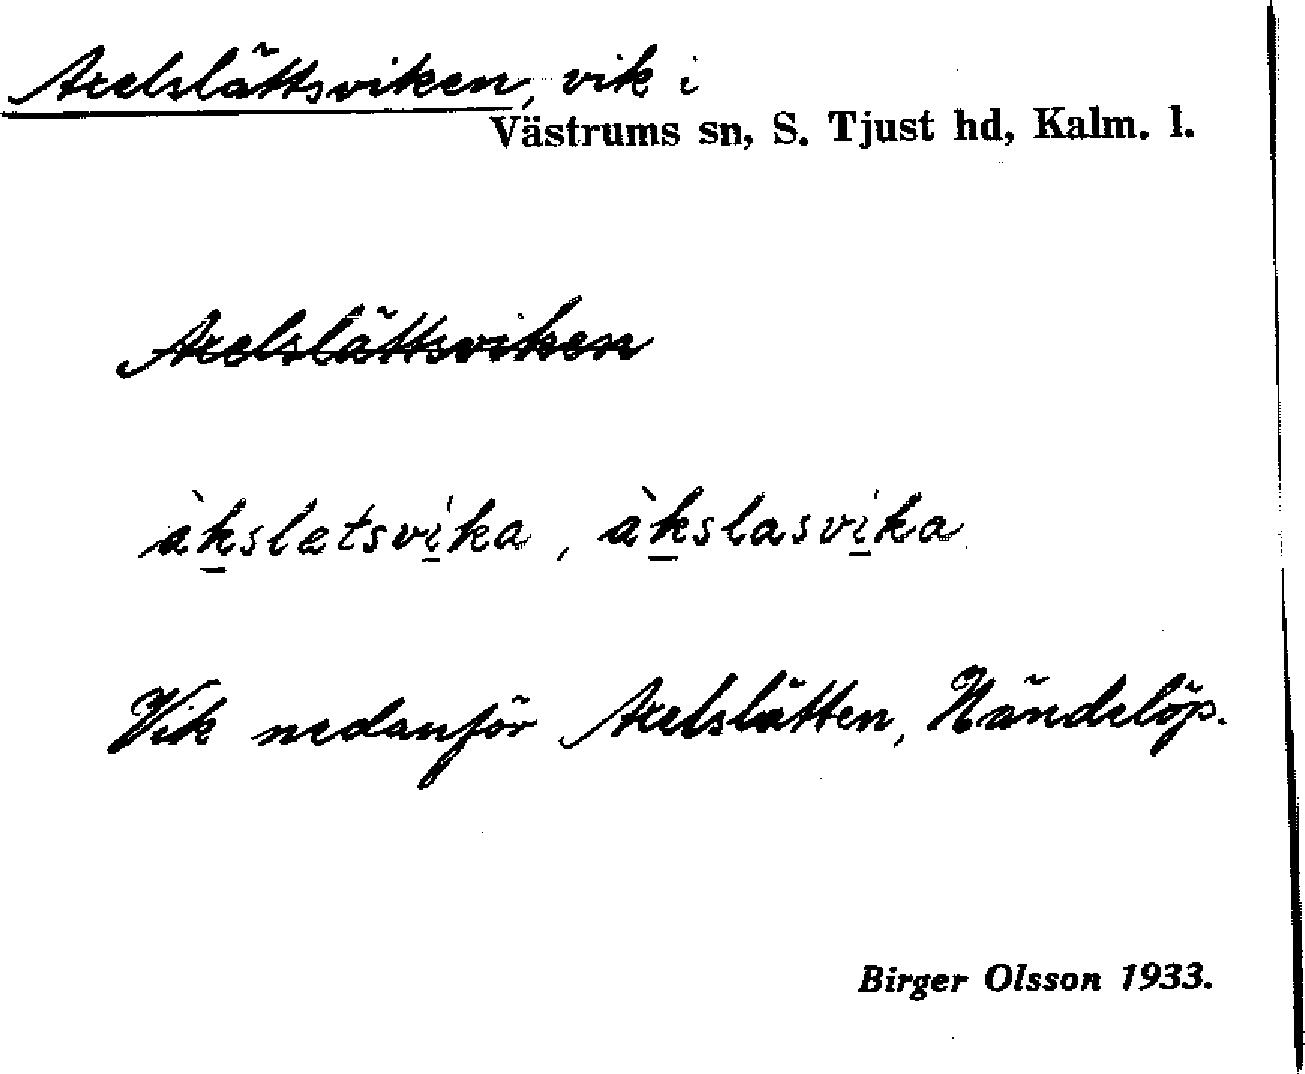 Axelslättsviken, vik i
Västrums sn, S. Tjust hd, Kalm. l.
Axelslättsviken
àksletsvi̱ka, àkslasvi̱ka
Vik nedanför Axelslätten, Händelöp.
Birger Olsson 1933.